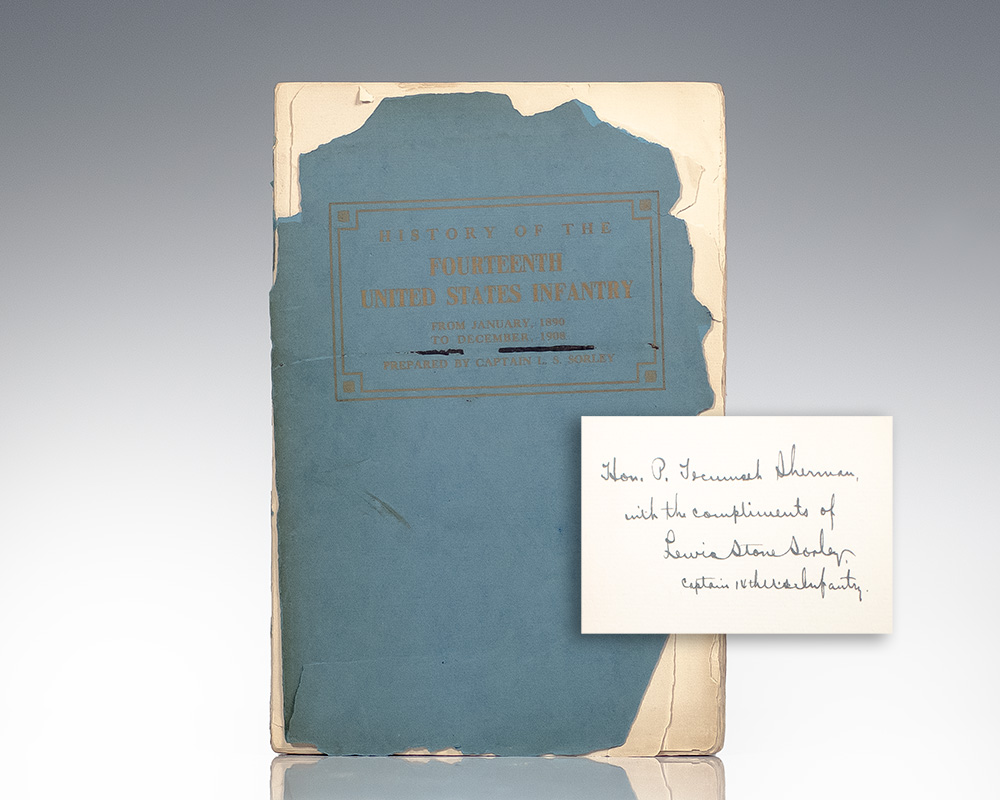 HISTORY OF THE
FOURTEENTH
UNITED STATES INFANTRY
FROM JANUARY, 1890
TO DECEMBER, 1908
PREPARED BY CAPTAIN L. S. SORLEY
Hon. P. Tecumseh Sherman,
with the compliments of
Lewis Stone Sorley,
Captain 14th U.S. Infantry.